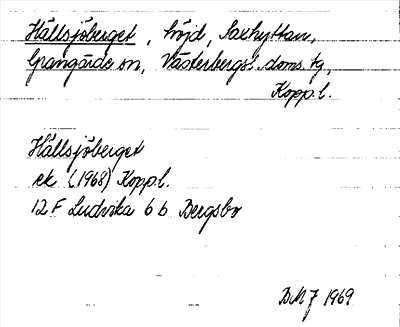 Hällsjöberget, höjd, Saxhyttan,
Grangärde sn, Västerbergsl. doms. tg,
Kopp.l.
Hällsjöberget
ek (1968) Kopp.l.
12 F Ludvika 6 b Bergsbo
BMJ 1969